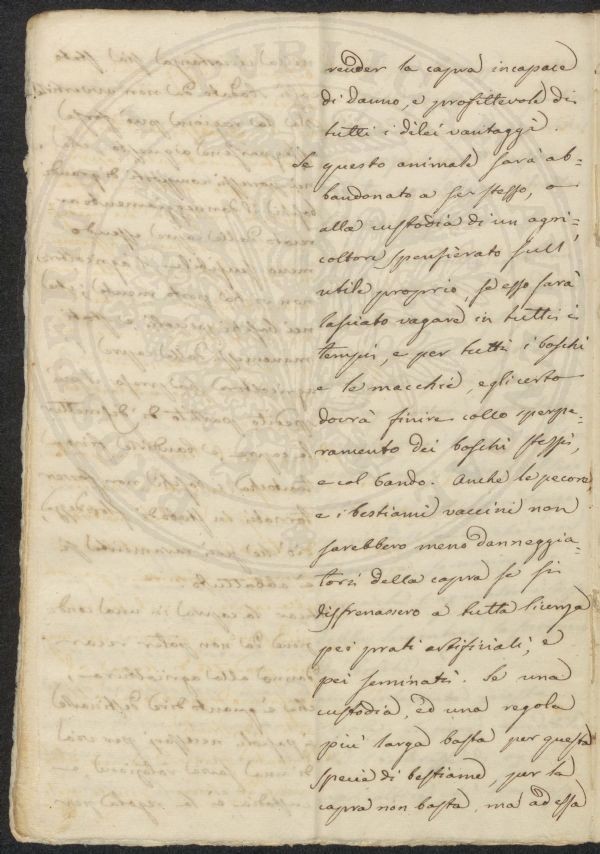 render la capra incapace
di danno, e profittevole di
tutti i dilei vantaggi.
Se questo animale sarà ab-
bandonato a se stesso, o
alla custodia di un agri-
coltore spensierato sull'
utile proprio, se esso sarà
lasciato vagare in tutti i
tempi, e per tutti i boschi
e le macchie, egli certo
dovrà finire collo sperpe-
ramento dei boschi stessi,
e col bando. Anche le pecore,
e i bestiami vaccini non
sarebbero meno danneggia-
tori della capra se si
disfrenassero a tutta licenza
pei prati artifiziali, e
pei seminati. Se una
custodia, ed una regola
più larga basta per questa
specie di bestiame, per la
capra non basta, ma ad essa